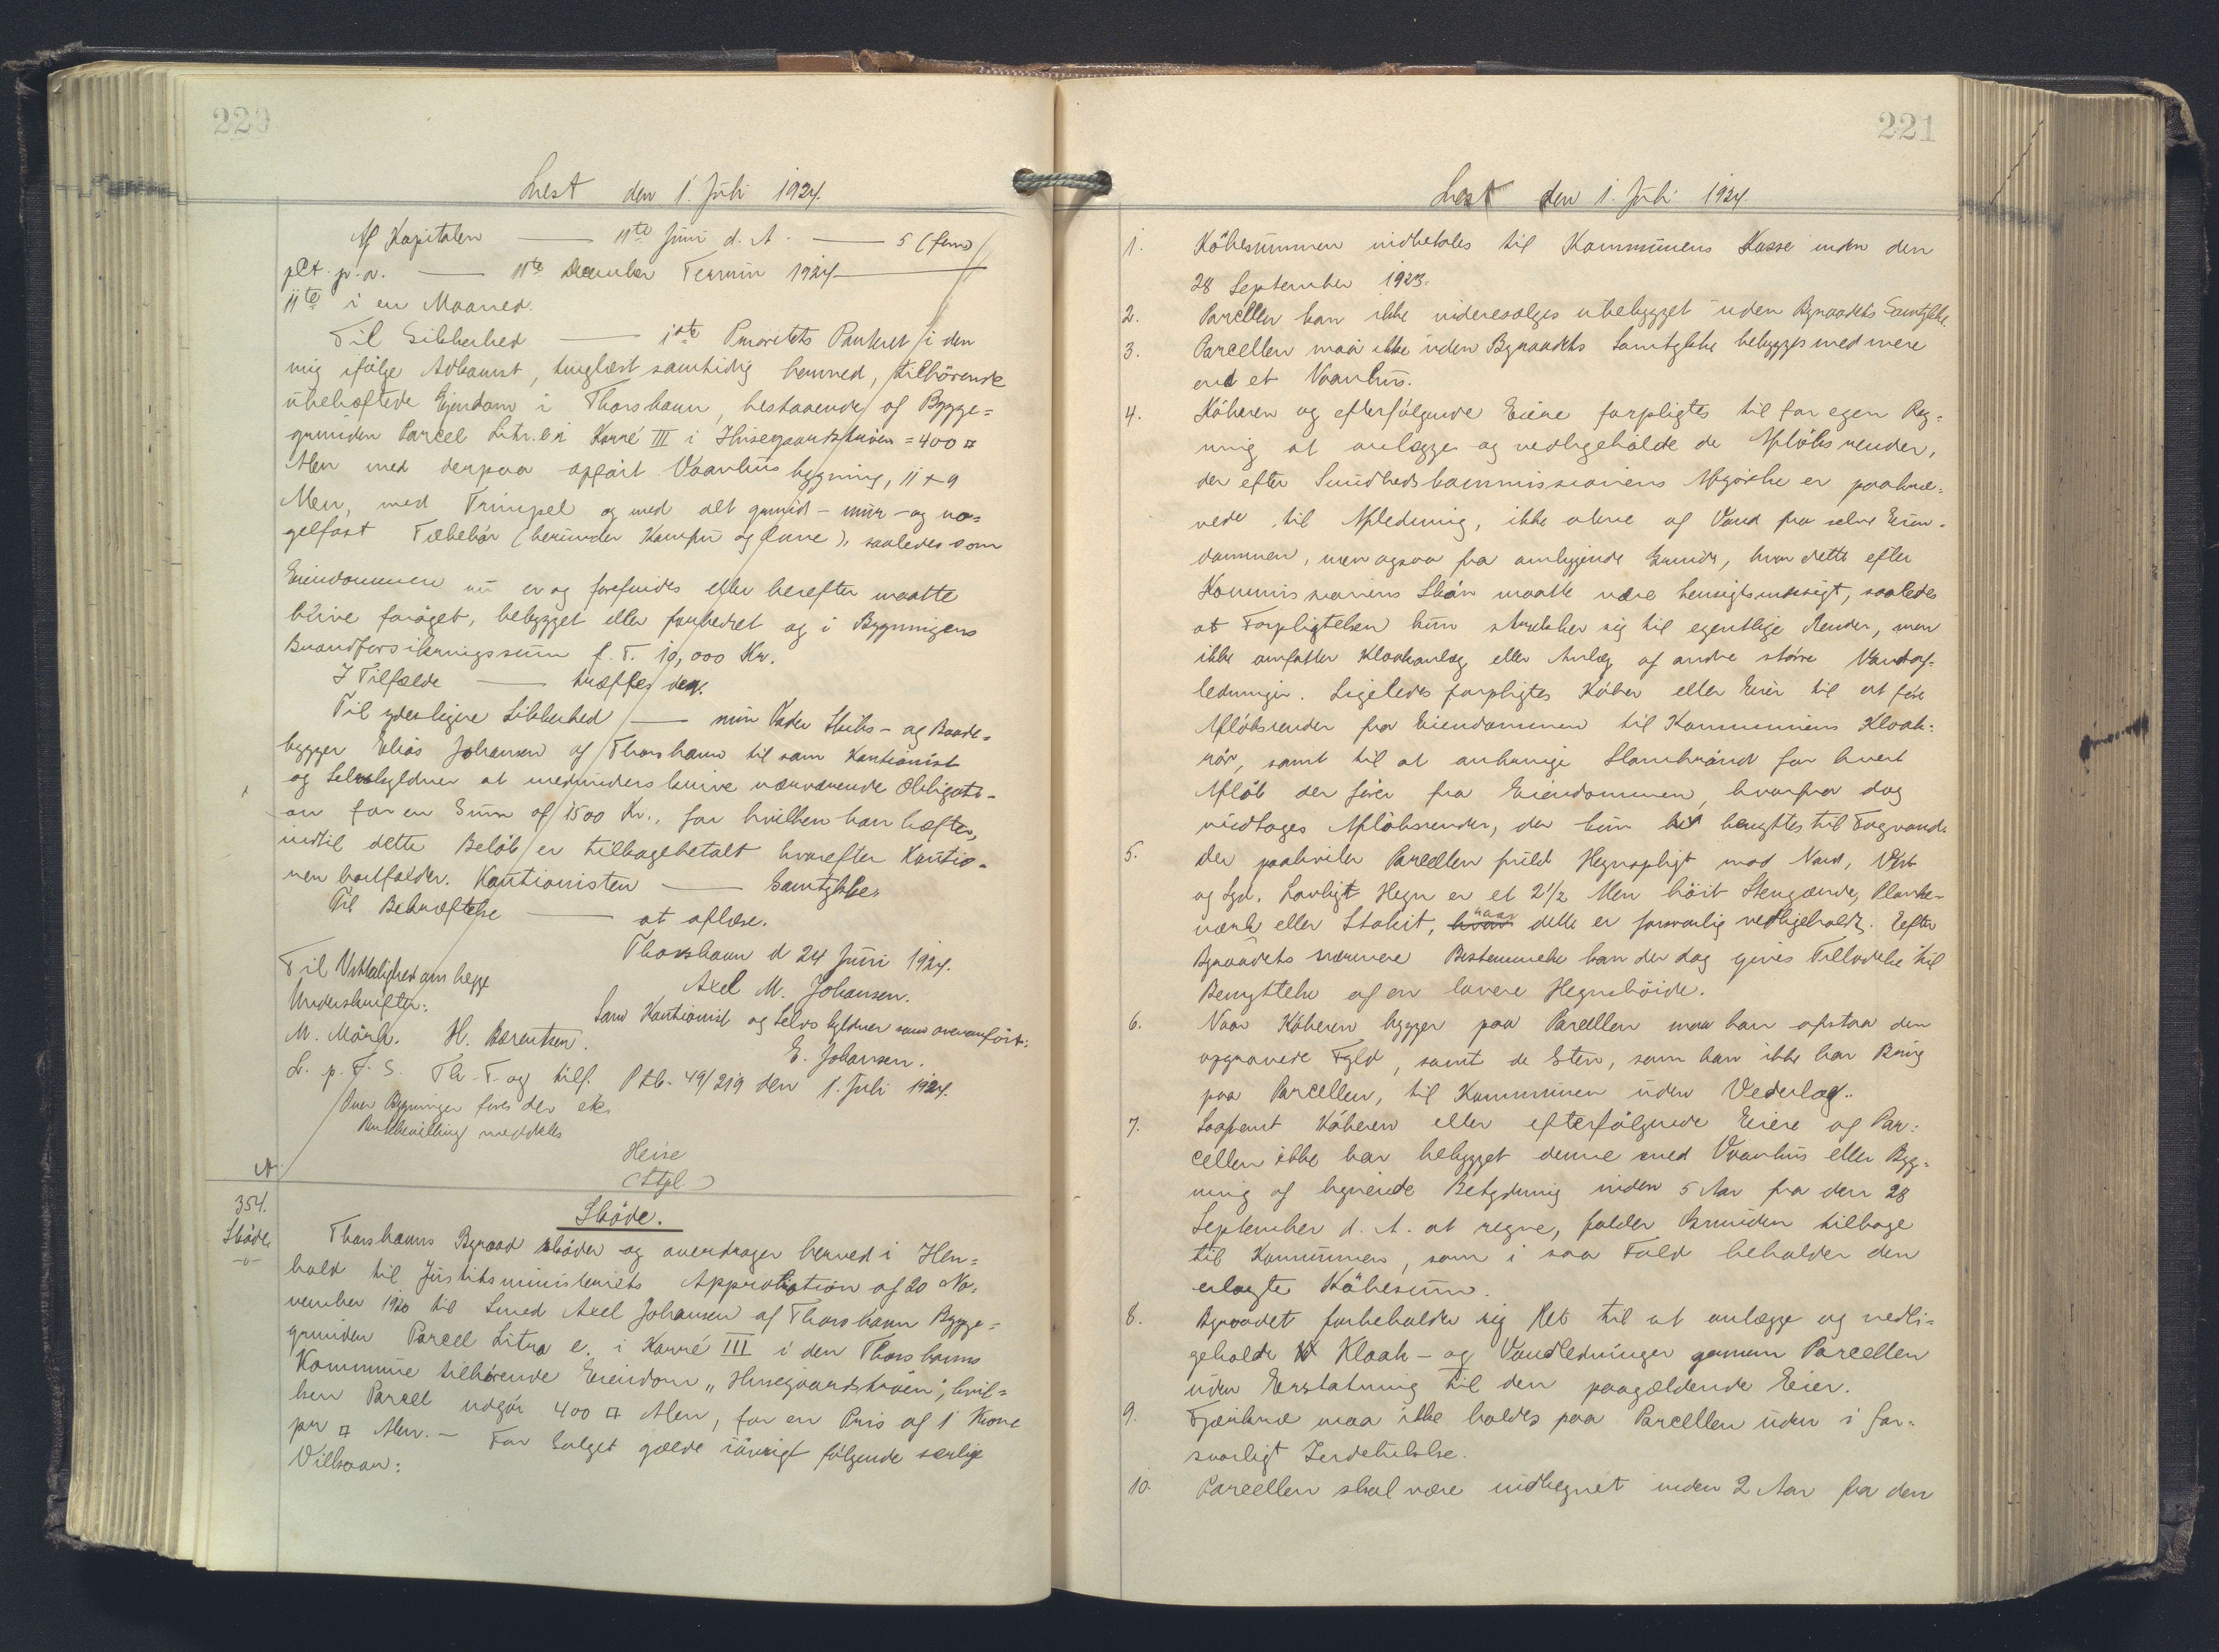 220
Læst den 1. Juli 1924.
Af Kapitalen — 11te Juni d. A. — 5 (fem)
pCt. p. a. — 11te December Termin 1924 —
11te i en Maaned.
Til Sikkerhed — 1ste Prioritets Panteret i den
mig ifølge Adkomst, tinglæst samtidig hermed, tilhørende
ubehæftede Ejendom i Thorshavn, bestaaende af Bygge=
grunden Parcel Litr. e i Karré III i Husegaardstrøen = 400 □
Alen med derpaa opført Vaanhusbygning, 11 x 9
Alen, med Trimpel og med alt grund- mur- og na=
gelfast Tilbehør (herunder Komfur og Ovne), saaledes som
Eiendommen nu er og forefindes eller herefter maatte
blive forøget, bebygget eller forbedret og i Bygningens
Brandforsikringssum f. T. 10,000 Kr.
I Tilfælde — træffes den.
Til yderligere Sikkerhed — min Fader Skibs- og Baade=
bygger Elias Johansen af Thorshavn til som Kautionist
og Selvskyldner at medunderskrive nærværende Obligati-
on for en Sum af 1500 Kr., for hvilken han hæfter,
indtil dette Beløb er tilbagebetalt hvorefter Kautio-
nen bortfalder. Kautionisten — Samtykke.
Til Bekræftelse — at aflæse.
Thorshavn d 24 Juni 1924.
Axel M. Johansen.
Som Kautionist og Selvskyldner som ovenanført:
E. Johansen.
Til Vitterlighed om begge
Underskrifter:
M. Mörk. H. Bærentsen.
L. p. F. S. Th. T. og tilf. Ptb. 49/219 den 1. Juli 1924.
Over Bygninger
meddeles
Heise
(Stpl.)
A
354.
Skøde
-"-
Skøde.
Thorshavns Byraad skøder og overdrager herved i Hen=
hold til Justitsministeriets Approbation af 20 No=
vember 1920 til Smed Axel Johansen af Thorshavn Bygge=
grunden Parcel Litra e. i Karré III i den Thorshavns
Kommune tilhørende Eiendom „Husegaardstrøen", hvil=
ken Parcel udgør 400 □ Alen, for en Pris af 1 Krone
pr □ Alen. — For Salget gælde iøvrigt følgende særlige
Vilkaar:
221
Læst den 1. Juli 1924.
1. Købesummen indbetales til Kommunens Kasse inden den
28 September 1923.
2. Parcellen kan ikke videresælges ubebygget uden Byraadets Samtykke
3. Parcellen maa ikke uden Byraadets Samtykke bebygges med mere
end et Vaanhus.
4. Køberen og efterfølgende Eiere forpligtes til for egen Reg=
ning at anlægge og vedligeholde de Afløbsrender,
der efter Sundhedskommissionens Afgørelse er paakræ=
vede til Afledning, ikke alene af Vand fra selve Eien-
dommen, men ogsaa fra omliggende Grunde, hvor dette efter
Kommissionens Skøn maatte være hensigtsmæssigt, saaledes
at Forpligtelsen kun strækker sig til egentlige Render, men
ikke omfatter Kloakanlæg eller Anlæg af andre større Vandaf=
ledninger. Ligeledes forpligtes Køber eller Eier til at føre
Afløbsrender fra Eiendommen til Kommunens Kloak=
rør, samt til at anbringe Slambrønd for hvert
Afløb der fører fra Eiendommen, hvorfra dog
undtages Afløbsrender, der kun benyttes til Tagvand.
5. Der paahviler Parcellen fuld Hegnspligt mod Nord, Vest
og Syd. Lovligt Hegn er et 2 1/2 Alen høit Stengærde, Planke-
værk eller Stakit, naar dette er forsvarlig vedligeholdt. Efter
Byraadets nærmere Bestemmelse kan der dog gives Tilladelse til
Benyttelse af en lavere Hegnshøide.
6. Naar Køberen bygger paa Parcellen maa han afstaa den
opgravede Fyld, samt de Sten, som han ikke har Brug
paa Parcellen, til Kommunen uden Vederlag.
7. Saafremt Køberen eller efterfølgende Eiere af Par=
cellen ikke har bebygget denne med Vaanhus eller Byg=
ning af lignende Betydning inden 5 Aar fra den 28
September d. A. at regne, falder Grunden tilbage
til Kommunen, som i saa Fald beholder den
erlagte Købesum.
8. Byraadet forbeholder sig Ret til at anlægge og vedli=
geholde Kloak- og Vandledninger gennem Parcellen
uden Erstatning til den paagældende Eier.
9. Fjerkræ maa ikke holdes paa Parcellen uden i for=
svarligt Indelukke.
10. Parcellen skal være indhegnet inden 2 Aar fra den